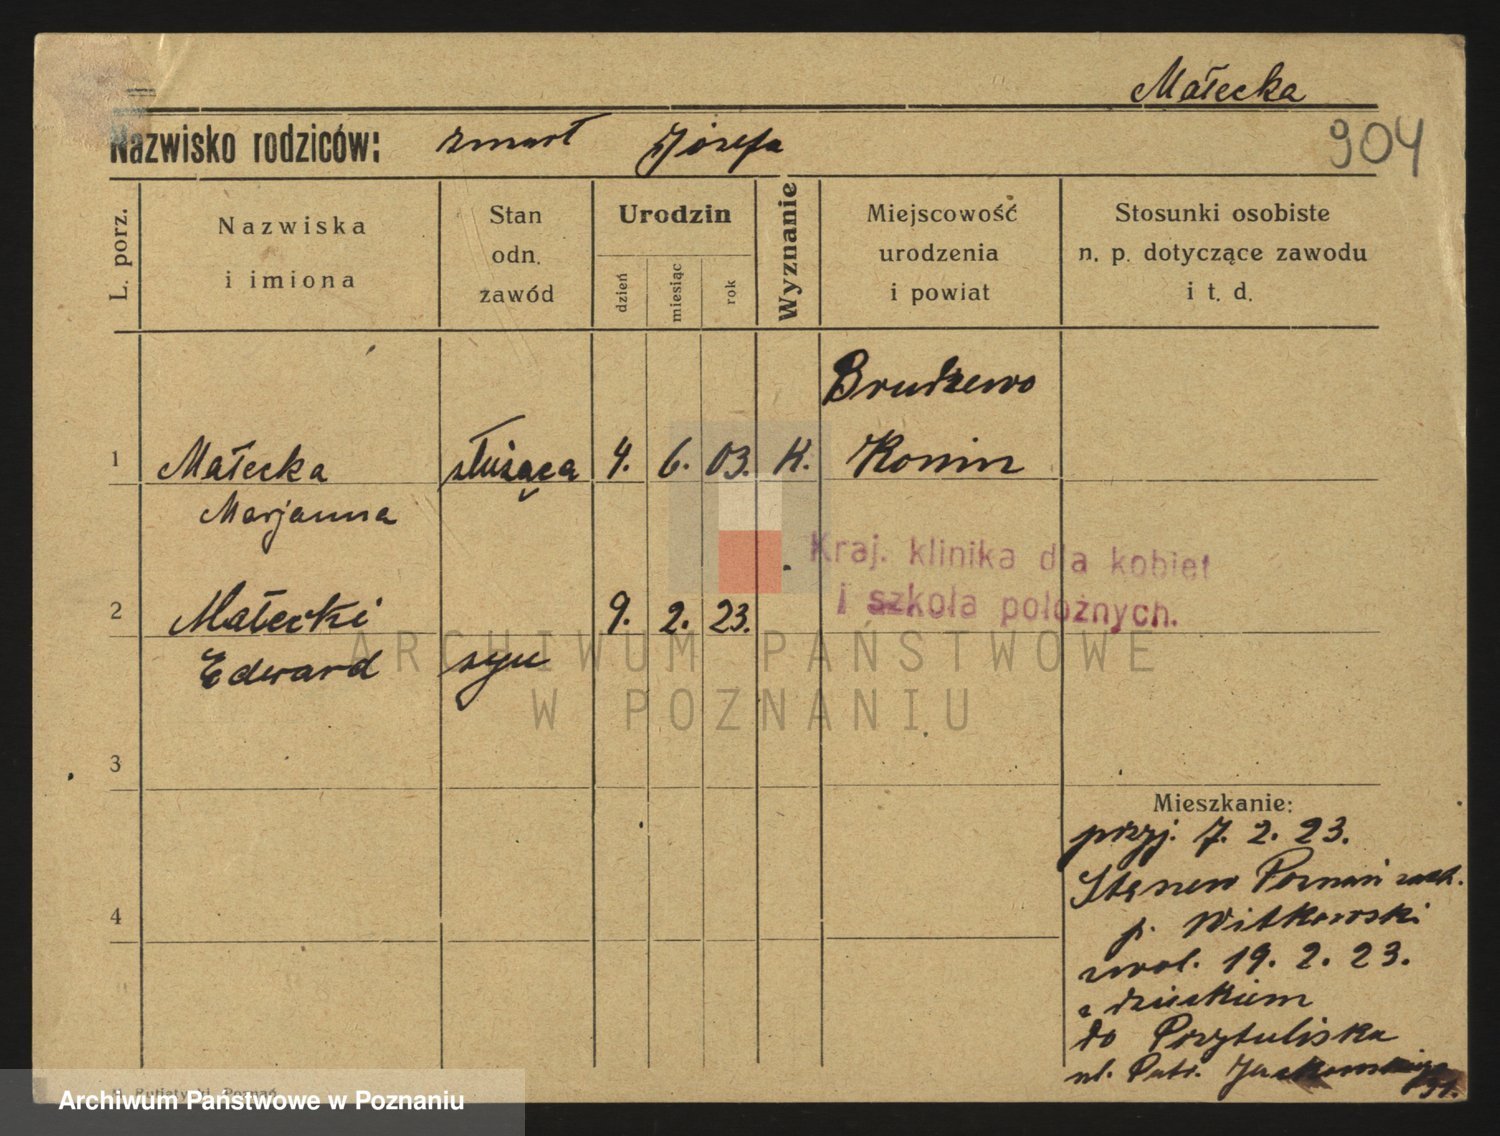 Małecka
Nazwisko rodziców: zmarł Józefa
904
L. porz.
Nazwiska
i imiona
Stan
odn.
zawód
Urodzin
dzień
miesiąc
rok
Wyznanie
Miejscowość
urodzenia
i powiat
Stosunki osobiste
n. p. dotyczące zawodu
i t. d.
Brudzewo
1 Małecka służąca 4. 6. 03. K. Konin
Marjanna
Kraj. klinika dla kobiet
i szkoła położnych.
2 Małecki 9. 2. 23.
Edward syn
ARCHIWUM PAŃSTWOWE
W POZNANIU
3
Mieszkanie:
przyj. 7. 2. 23.
Poznań
4
p. Witkowski
zwol. 19. 2. 23.
z dzieckiem
do Przytuliska
ul. Patr. Jackowskiego
Poznań
Archiwum Państwowe w Poznaniu